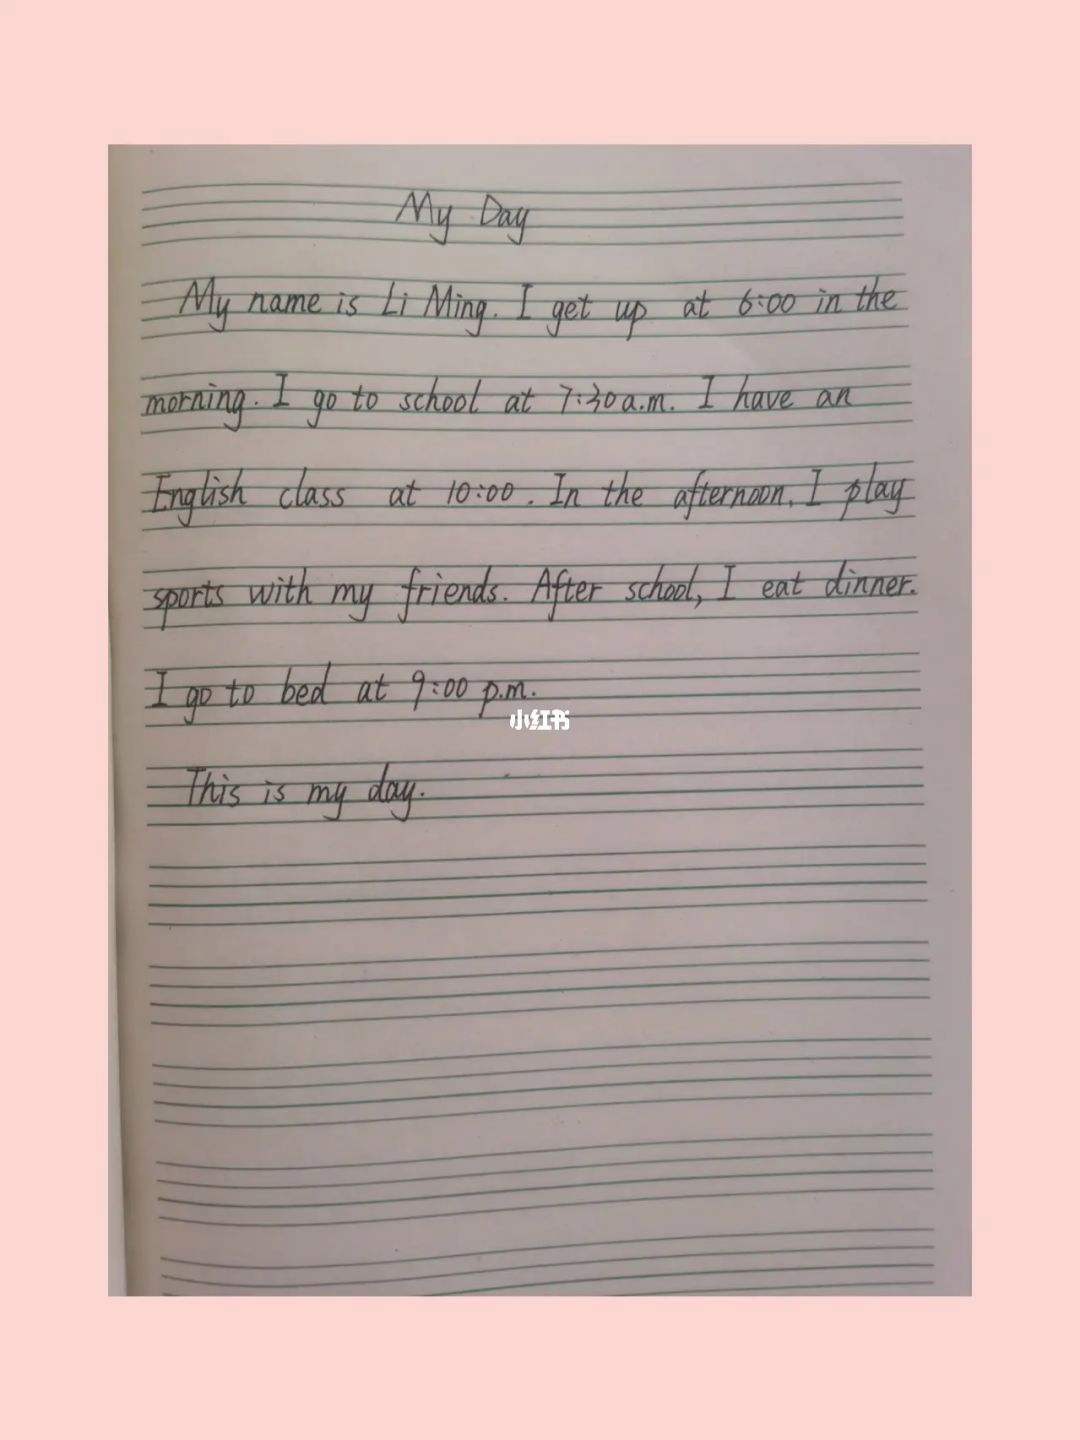 My Day
My name is Li Ming. I get up at 6:00 in the
morning. I go to school at 7:30 a.m. I have an
English class at 10:00. In the afternoon, I play
sports with my friends. After school, I eat dinner.
I go to bed at 9:00 p.m.
小红书
This is my day.